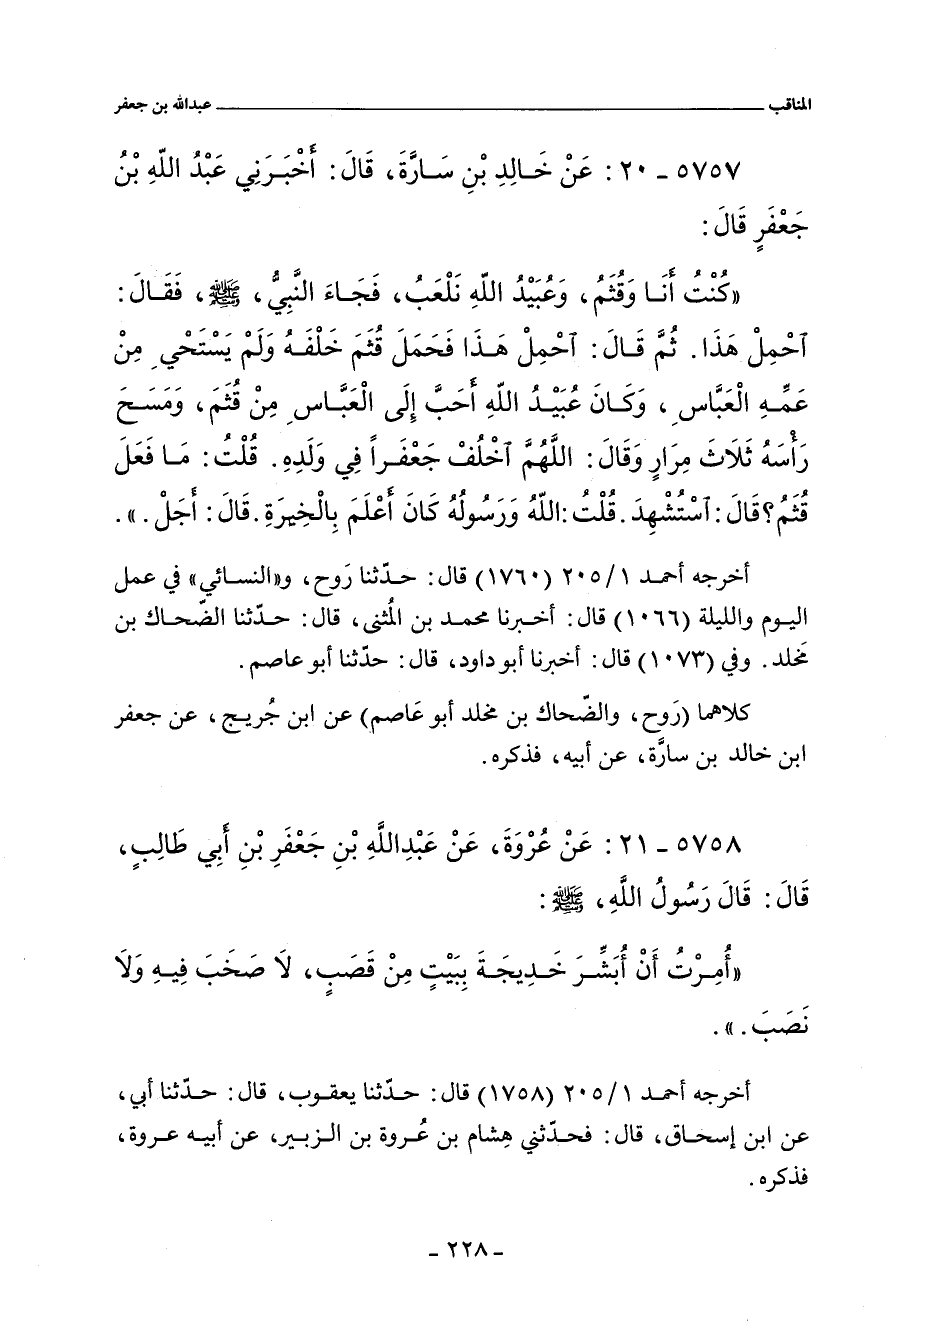 المناقب عبدالله بن جعفر
٥٧٥٧ ـ ٢٠ : عَنْ خَالِدِ بْنِ سَارَّةَ، قَالَ: أَخْبَرَنِي عَبْدُ اللّهِ بْنُ
جَعْفَرٍ قَالَ:
«كُنْتُ أَنَا وَقُثَمُ، وَعُبَيْدُ اللّهِ نَلْعَبُ، فَجَاءَ النَّبِيُّ، ﷺ، فَقَالَ:
ٱحْمِلْ هَذَا. ثُمَّ قَالَ: ٱحْمِلْ هَذَا فَحَمَلَ قُثَمَ خَلْفَهُ وَلَمْ يَسْتَحْيِ مِنْ
عَمِّهِ الْعَبَّاسِ، وَكَانَ عُبَيْدُ اللّهِ أَحَبَّ إِلَى الْعَبَّاسِ مِنْ قُثَمَ، وَمَسَحَ
رَأْسَهُ ثَلَاثَ مِرَارٍ وَقَالَ: اللَّهُمَّ ٱخْلُفْ جَعْفَراً فِي وَلَدِهِ. قُلْتُ: مَا فَعَلَ
قُثَمُ؟ قَالَ: ٱسْتُشْهِدَ. قُلْتُ: اللّهُ وَرَسُولُهُ كَانَ أَعْلَمَ بِالْخِيرَةِ. قَالَ: أَجَلْ.».
أخرجه أحمد ١/ ٢٠٥ (١٧٦٠) قال: حدّثنا رَوح، و«النسائي» في عمل
اليوم والليلة (١٠٦٦) قال: أخبرنا محمد بن المُثنى، قال: حدّثنا الضّحاك بن
مخلد. وفي (١٠٧٣) قال: أخبرنا أبو داود، قال: حدّثنا أبو عاصم.
كلاهما (رَوح، والضّحاك بن مخلد أبو عَاصم) عن ابن جُريج، عن جعفر
ابن خالد بن سارَّة، عن أبيه، فذكره.
٥٧٥٨ ـ ٢١ : عَنْ عُرْوَةَ، عَنْ عَبْدِاللَّهِ بْنِ جَعْفَرِ بْنِ أَبِي طَالِبٍ،
قَالَ: قَالَ رَسُولُ اللَّهِ، ﷺ:
«أُمِرْتُ أَنْ أُبَشِّرَ خَدِيجَةَ بِبَيْتٍ مِنْ قَصَبٍ، لَا صَخَبَ فِيهِ وَلَا
نَصَبَ.».
أخرجه أحمد ١/ ٢٠٥ (١٧٥٨) قال: حدّثنا يعقوب، قال: حدّثنا أبي،
عن ابن إسحاق، قال: فحدّثني هِشام بن عُروة بن الزبير، عن أبيه عروة،
فذكره.
ـ ٢٢٨ ـ